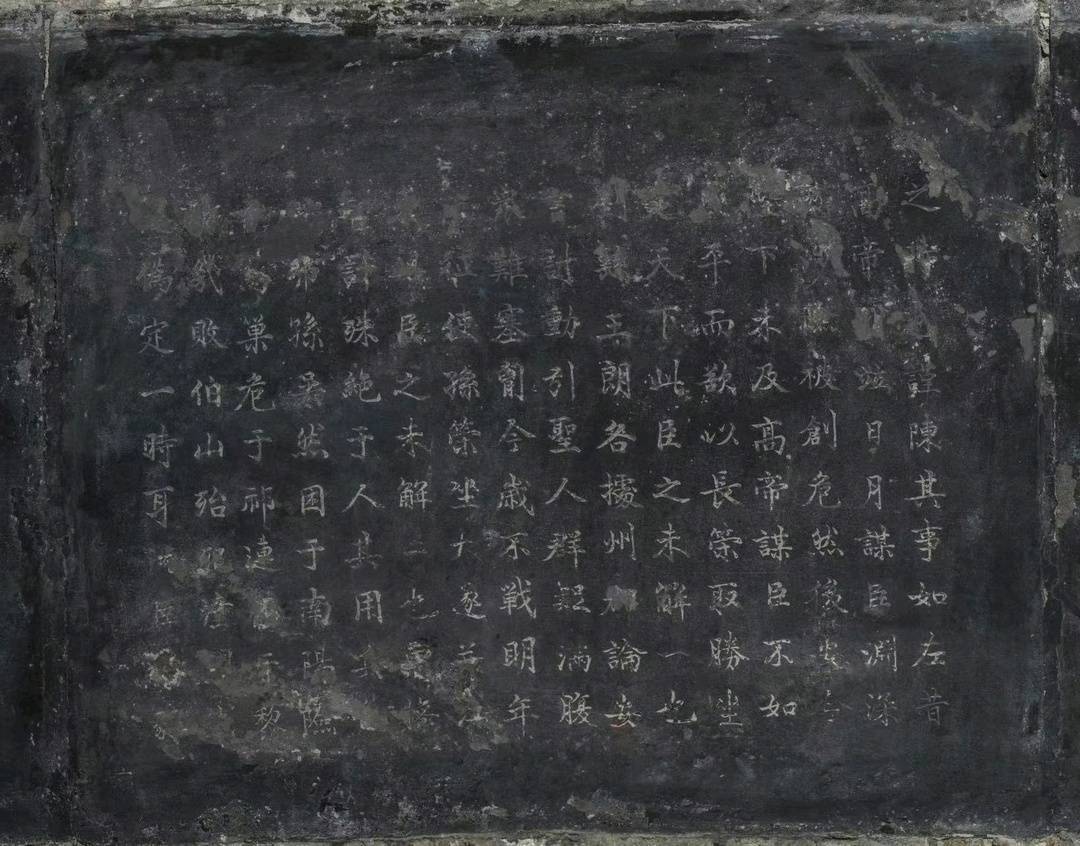 之時也謹陳其事如左昔
帝明並日月謀臣淵深
險被創危然後安今
下未及高帝謀臣不如
平而欲以長策取勝坐
定天下此臣之未解一也
劉繇王朗各據州郡論安
言討動引聖人群疑滿腹
衆難塞胸今歲不戰明年
征使孫策坐大遂并江
此臣之未解二也曹操
計殊絶于人其用兵
彿孫吳然困于南陽險
烏巢危于祁連逼于黎
幾敗伯山殆死潼
偽定一時耳況臣